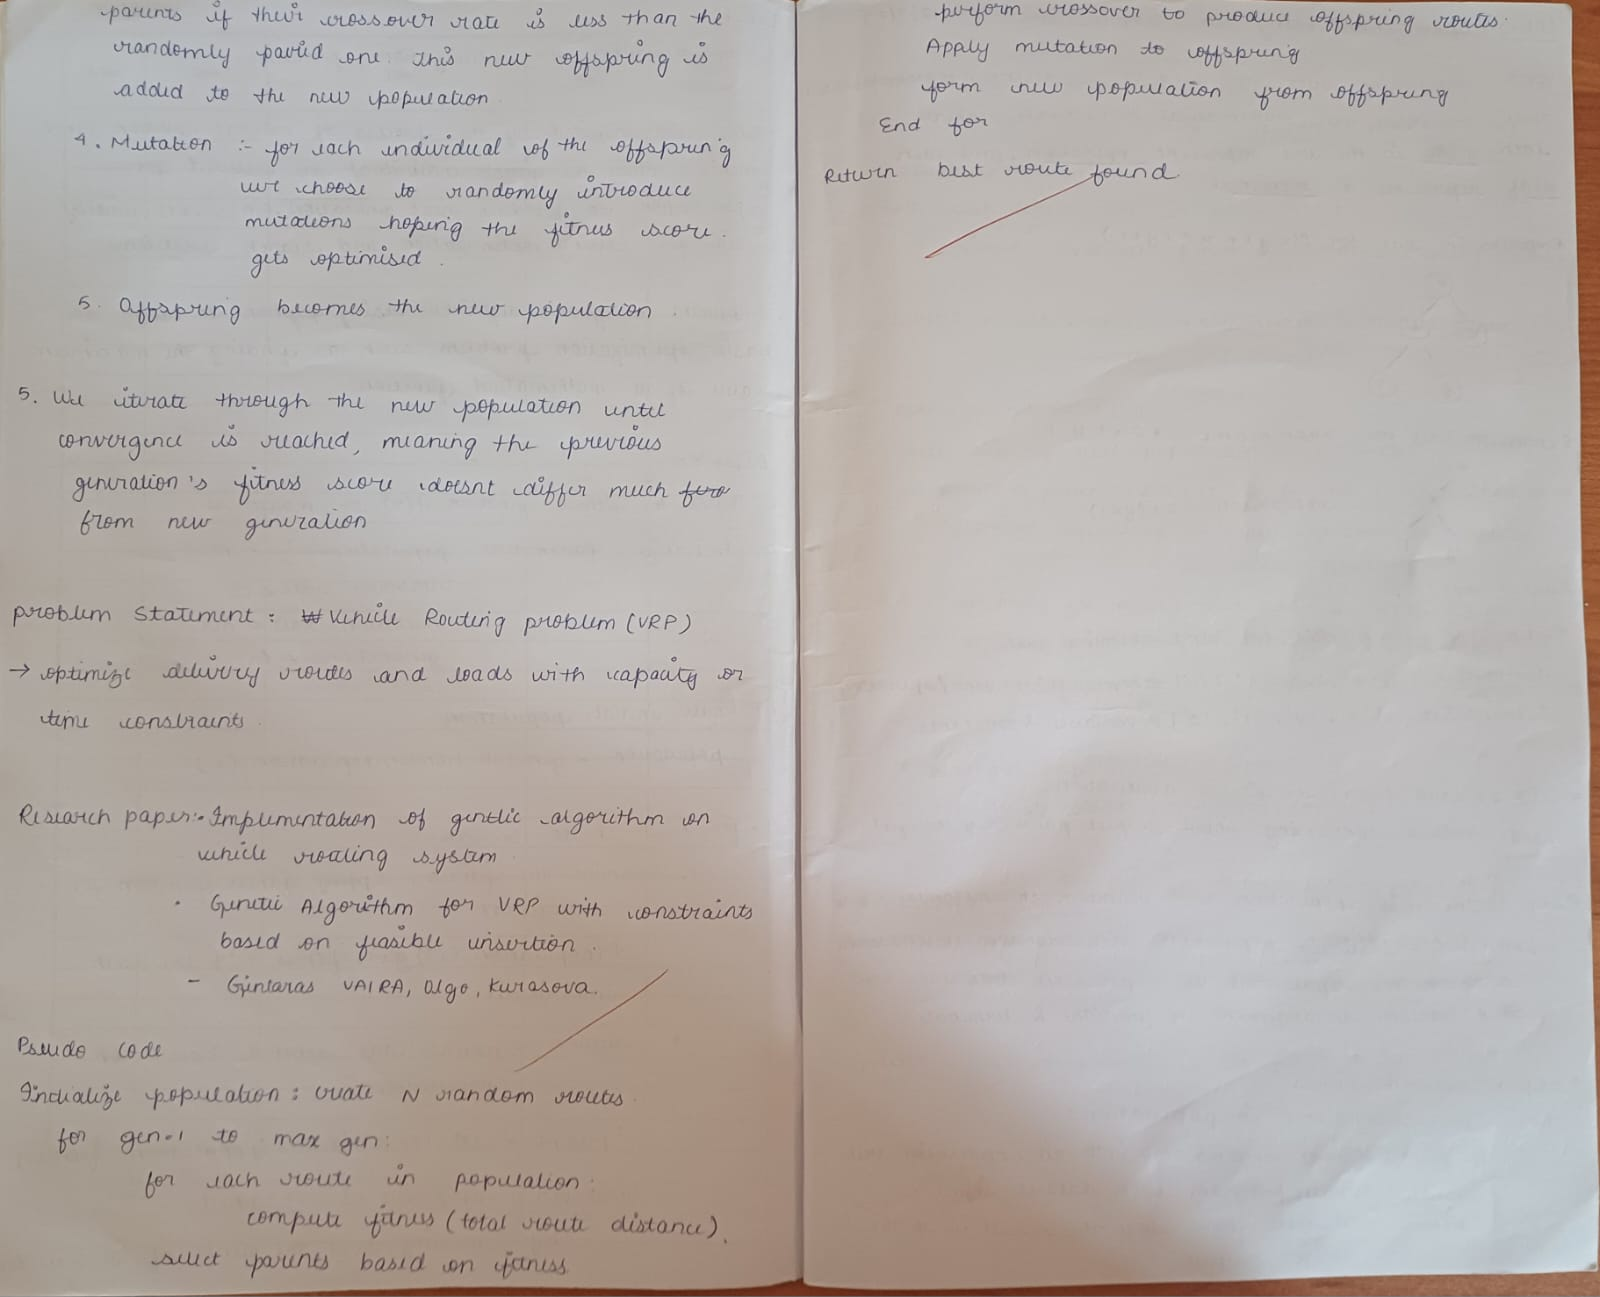 parents if their crossover rate is less than the
randomly paried one. this new offspring is
added to the new population
4. Mutation :- for each individual of the offspring
we choose to randomly introduce
mutations hoping the fitness score.
gets optimised.
5. Offspring becomes the new population.
5. We iterate through the new population until
convergence is reached, meaning the previous
generation's fitness score doesnt differ much
from new generation
problem Statement : Vehicle Routing problem (VRP)
→ optimize delivery routes and loads with capacity or
time constraints.
Research paper:- Implementation of genetic algorithm on
vehicle roating system
• Genetic Algorithm for VRP with constraints
based on feasible insertion.
- Gintaras VAIRA, Olgo, Kurasova.
Pseudo code
Initialize population : create N random routes.
for gen=1 to max gen:
for each route in population:
compute fitness (total route distance).
select parents based on fitness
perform crossover to produce offspring routes.
Apply mutation to offspring
form new population from offspring
End for
Return best route found